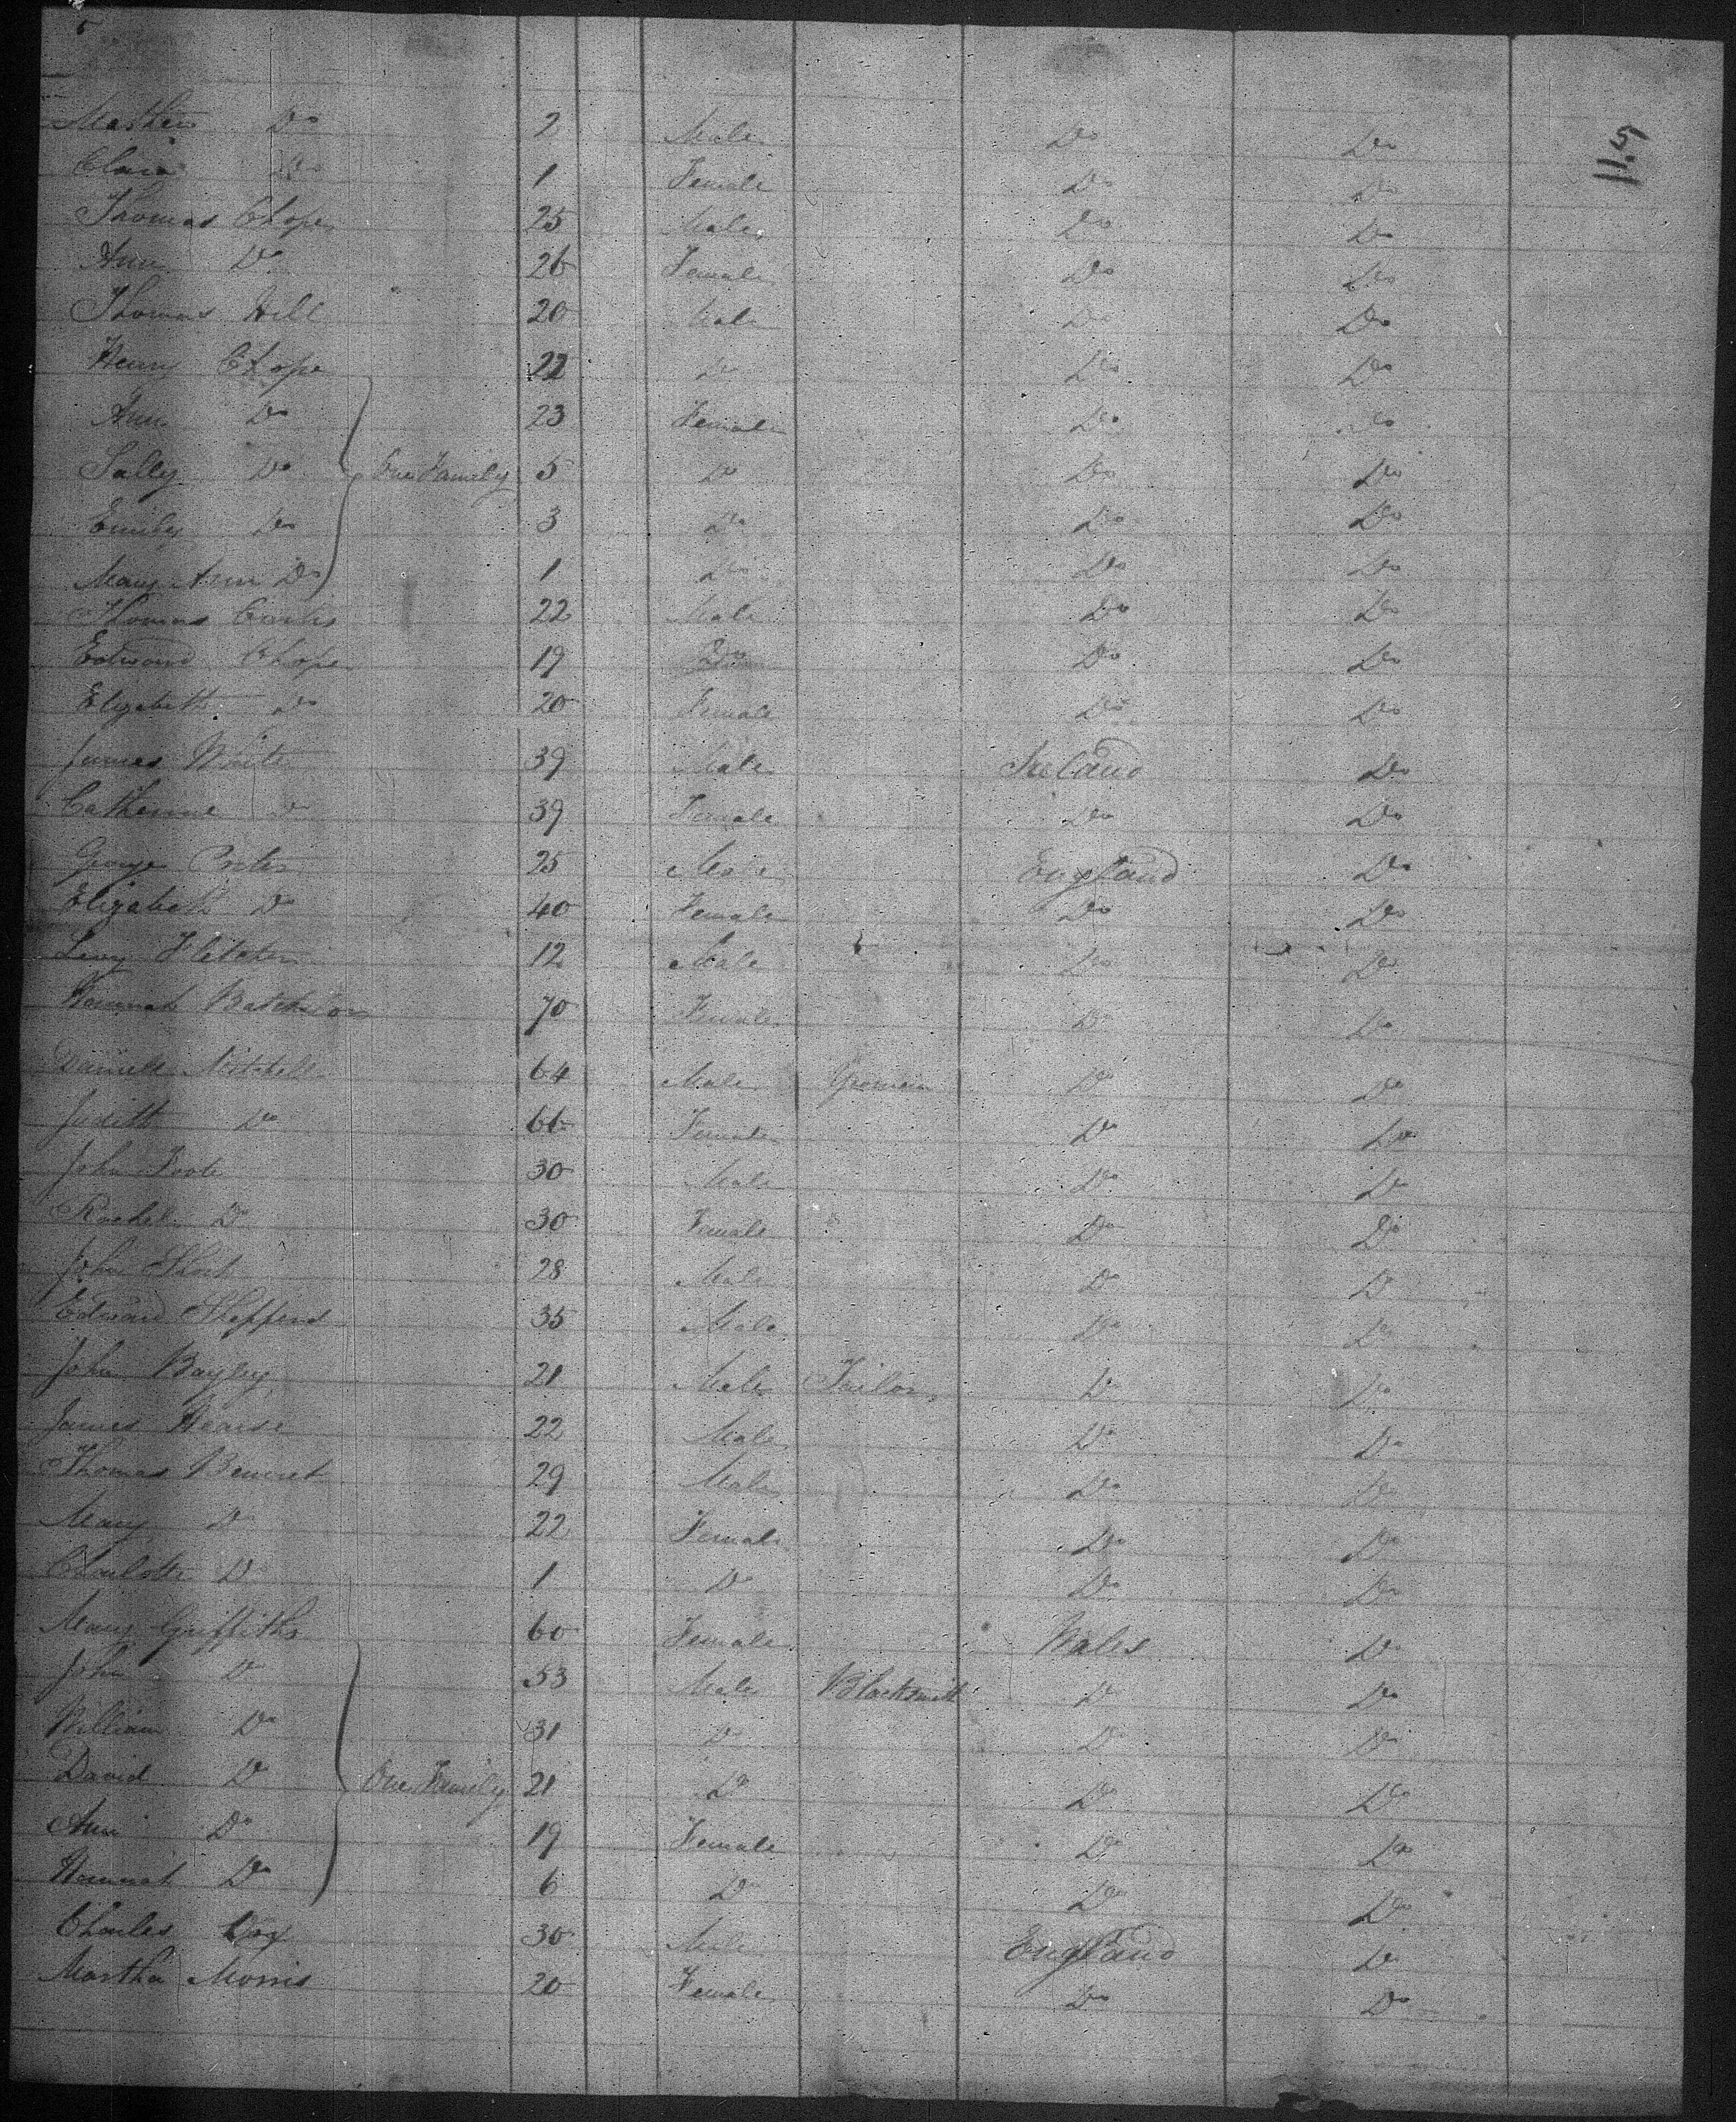 115
Mathew Do 2 Male Do Do
Clara Do 1 Female Do Do
Thomas Chope 25 Male Do Do
Ann Do 26 Female Do Do
Thomas Hill 20 Male Do Do
Henry Chope 22 Do Do Do
Ann Do 23 Female Do Do
Sally Do One Family 5 Do Do Do
Emily Do 3 Do Do Do
Mary Ann Do 1 Do Do Do
Thomas 22 Male Do Do
Edward Chope 19 Do Do Do
Elizabeth Do 20 Female Do Do
James White 39 Male Ireland Do
Catherine Do 39 Female Do Do
George 25 Male England Do
Elizabeth Do 40 Female Do Do
Levy Fletcher 12 Male Do Do
Hannah Batchelor 70 Female Do Do
Daniell Mitchell 64 Male Do Do
Judith Do 66 Female Do Do
John Foote 30 Male Do Do
Rachel Do 30 Female Do Do
John Short 28 Male Do Do
Edward Shepperd 35 Male Do Do
John Bayley 21 Male Tailor Do Do
James Hearse 22 Male Do Do
Thomas Bennet 29 Male Do Do
Mary Do 22 Female Do Do
Charlotte Do 1 Do Do Do
Mary Griffiths 60 Female Wales Do
John Do 53 Male Blacksmith Do Do
William Do 31 Do Do Do
David Do One Family 21 Do Do Do
Ann Do 19 Female Do Do
Hannah Do 6 Do Do Do
Charles 30 Male England Do
Martha Morris 20 Female Do Do